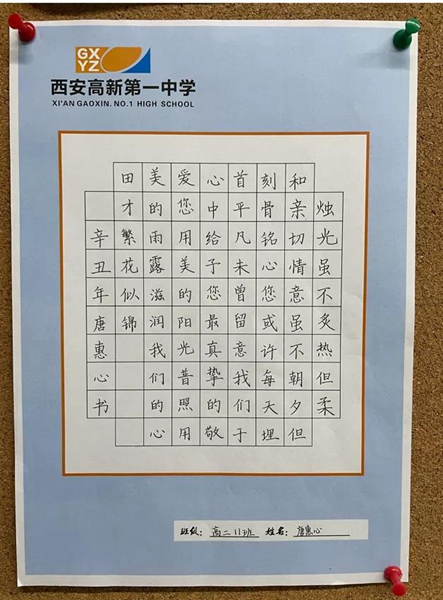 GX
YZ
西安高新第一中学
XI'AN GAOXIN. NO.1 HIGH SCHOOL
烛光虽不炙热但柔
和亲切情意虽不朝夕但
刻骨铭心您或许每天埋
首平凡未曾留意我们于
心中给予您最真挚的敬
爱您用美的阳光普照用
美的雨露滋润我们的心
田才繁花似锦
辛丑年唐惠心书
班级: 高二11班 姓名: 唐惠心